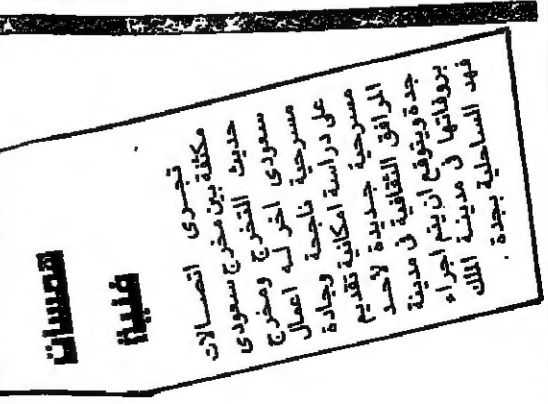 همسات
فنية
تجرى اتصالات
مكثفة بين مخرج سعودى
حديث التخرج ومخرج
سعودى اخر له اعمال
مسرحية ناجحة وجادة
على دراسة امكانية تقديم
مسرحية جديدة لاحد
المرافق الثقافية فى مدينة
جدة ويتوقع ان يتم اجراء
بروفاتها فى مدينة الملك
فهد الساحلية بجدة .